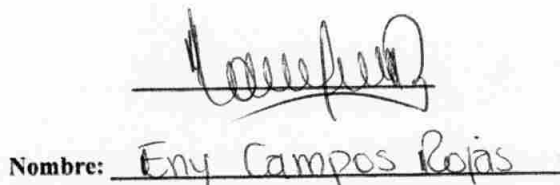 Nombre: Eny Campos Rojas